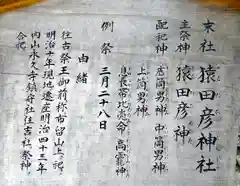 末社 猿田彦神社
主祭神 猿田彦神
配祀神 底筒男神 中筒男神
上筒男神
息長帯比売命 高靇神
例祭 三月二十八日
由緒
往古祭王御前称布留山上ニ祀
明治十年現地遷座明治四十三年
内山永久寺鎮守社住吉社祭神
合祀